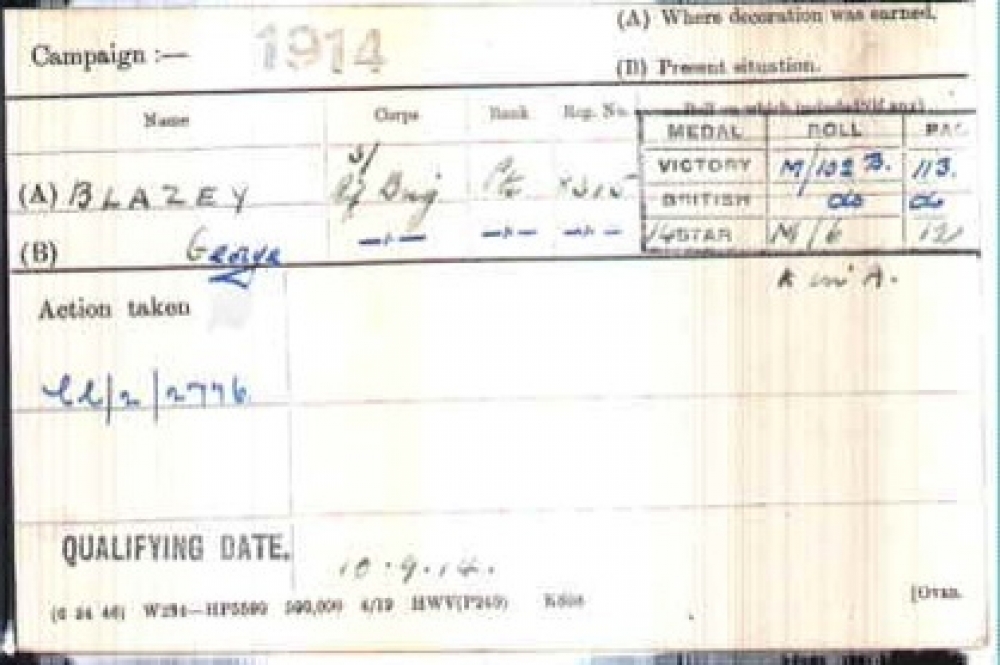 (A) Where decoration was earned.
Campaign :— 1914
(B) Present situation.
Name Corps Rank Reg. No. Roll on which included (if any)
MEDAL ROLL PAG
(A) BLAZEY 3/ Rif Brig Pte
VICTORY M/102 B. 113.
BRITISH do do
(B) George —„— —„— —„—
14 STAR M/6 121
K in A.
Action taken
/2/2776
QUALIFYING DATE. 10.9.14.
(6 34 46) W234—HP5590 500,000 4/19 HWV(P240) K608
[OVER.